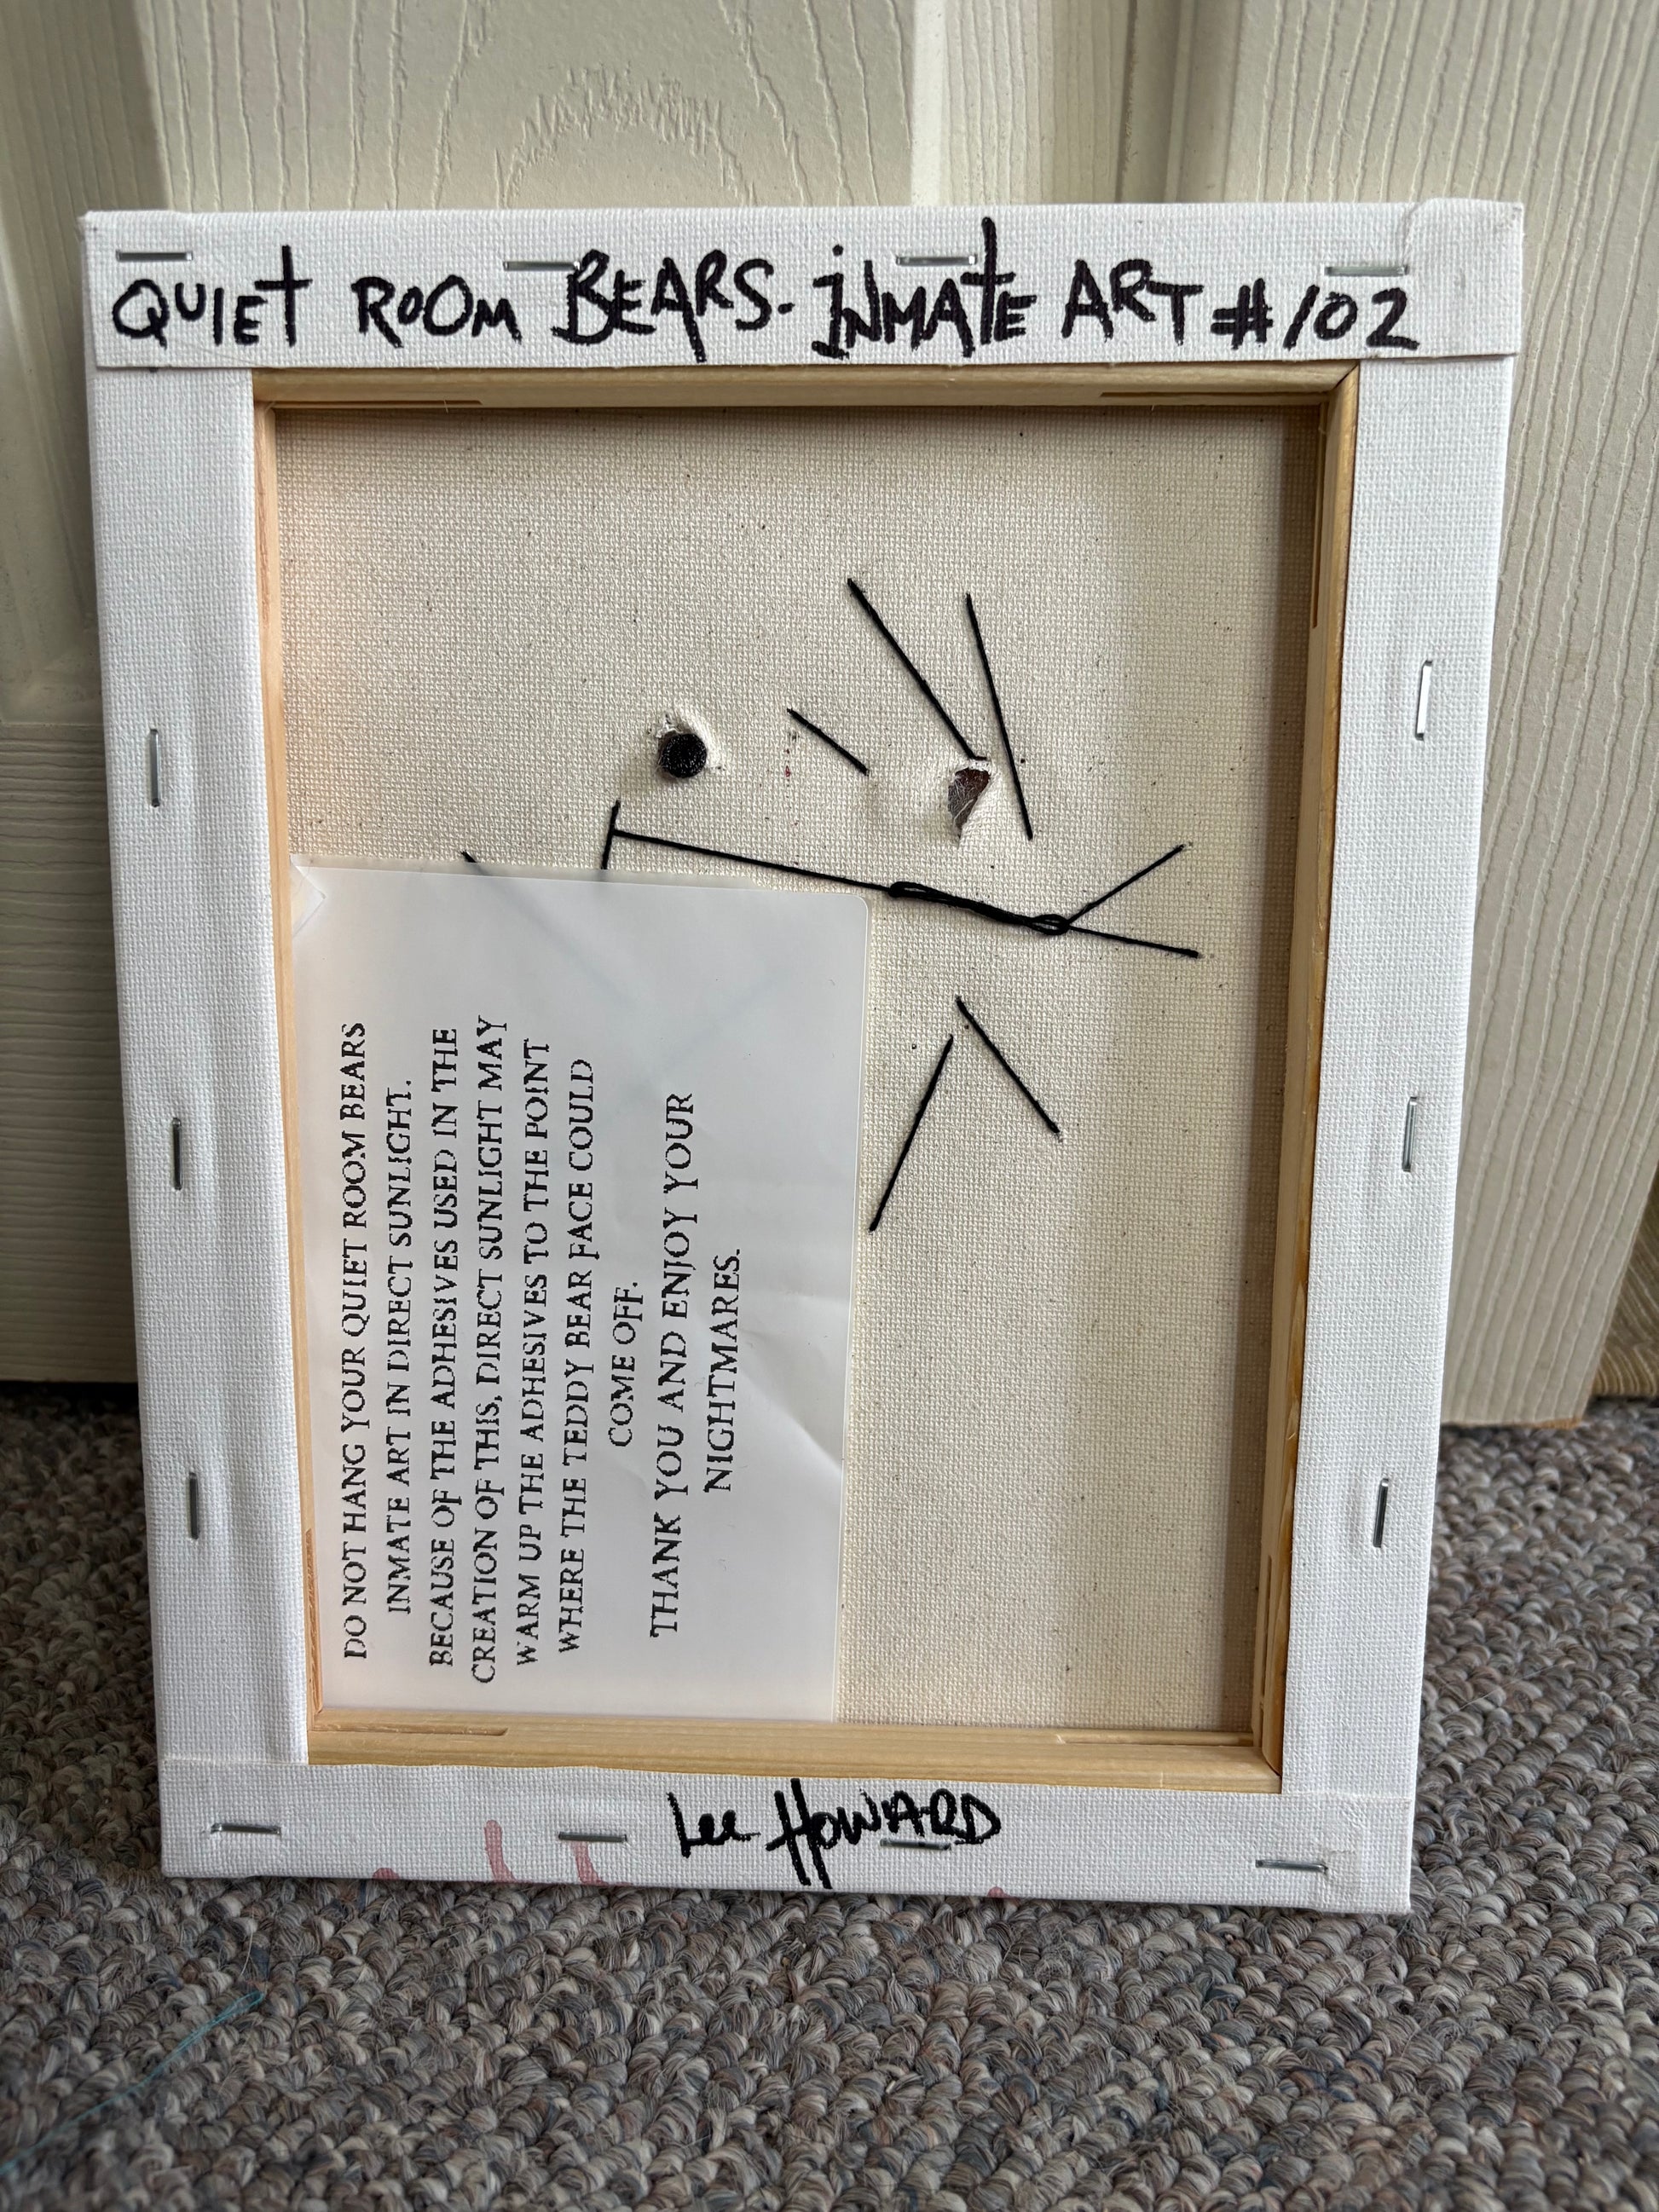 QUIET ROOM BEARS. INMATE ART #102
DO NOT HANG YOUR QUIET ROOM BEARS
INMATE ART IN DIRECT SUNLIGHT.
BECAUSE OF THE ADHESIVES USED IN THE
CREATION OF THIS, DIRECT SUNLIGHT MAY
WARM UP THE ADHESIVES TO THE POINT
WHERE THE TEDDY BEAR FACE COULD
COME OFF.
THANK YOU AND ENJOY YOUR
NIGHTMARES.
Lee HOWARD